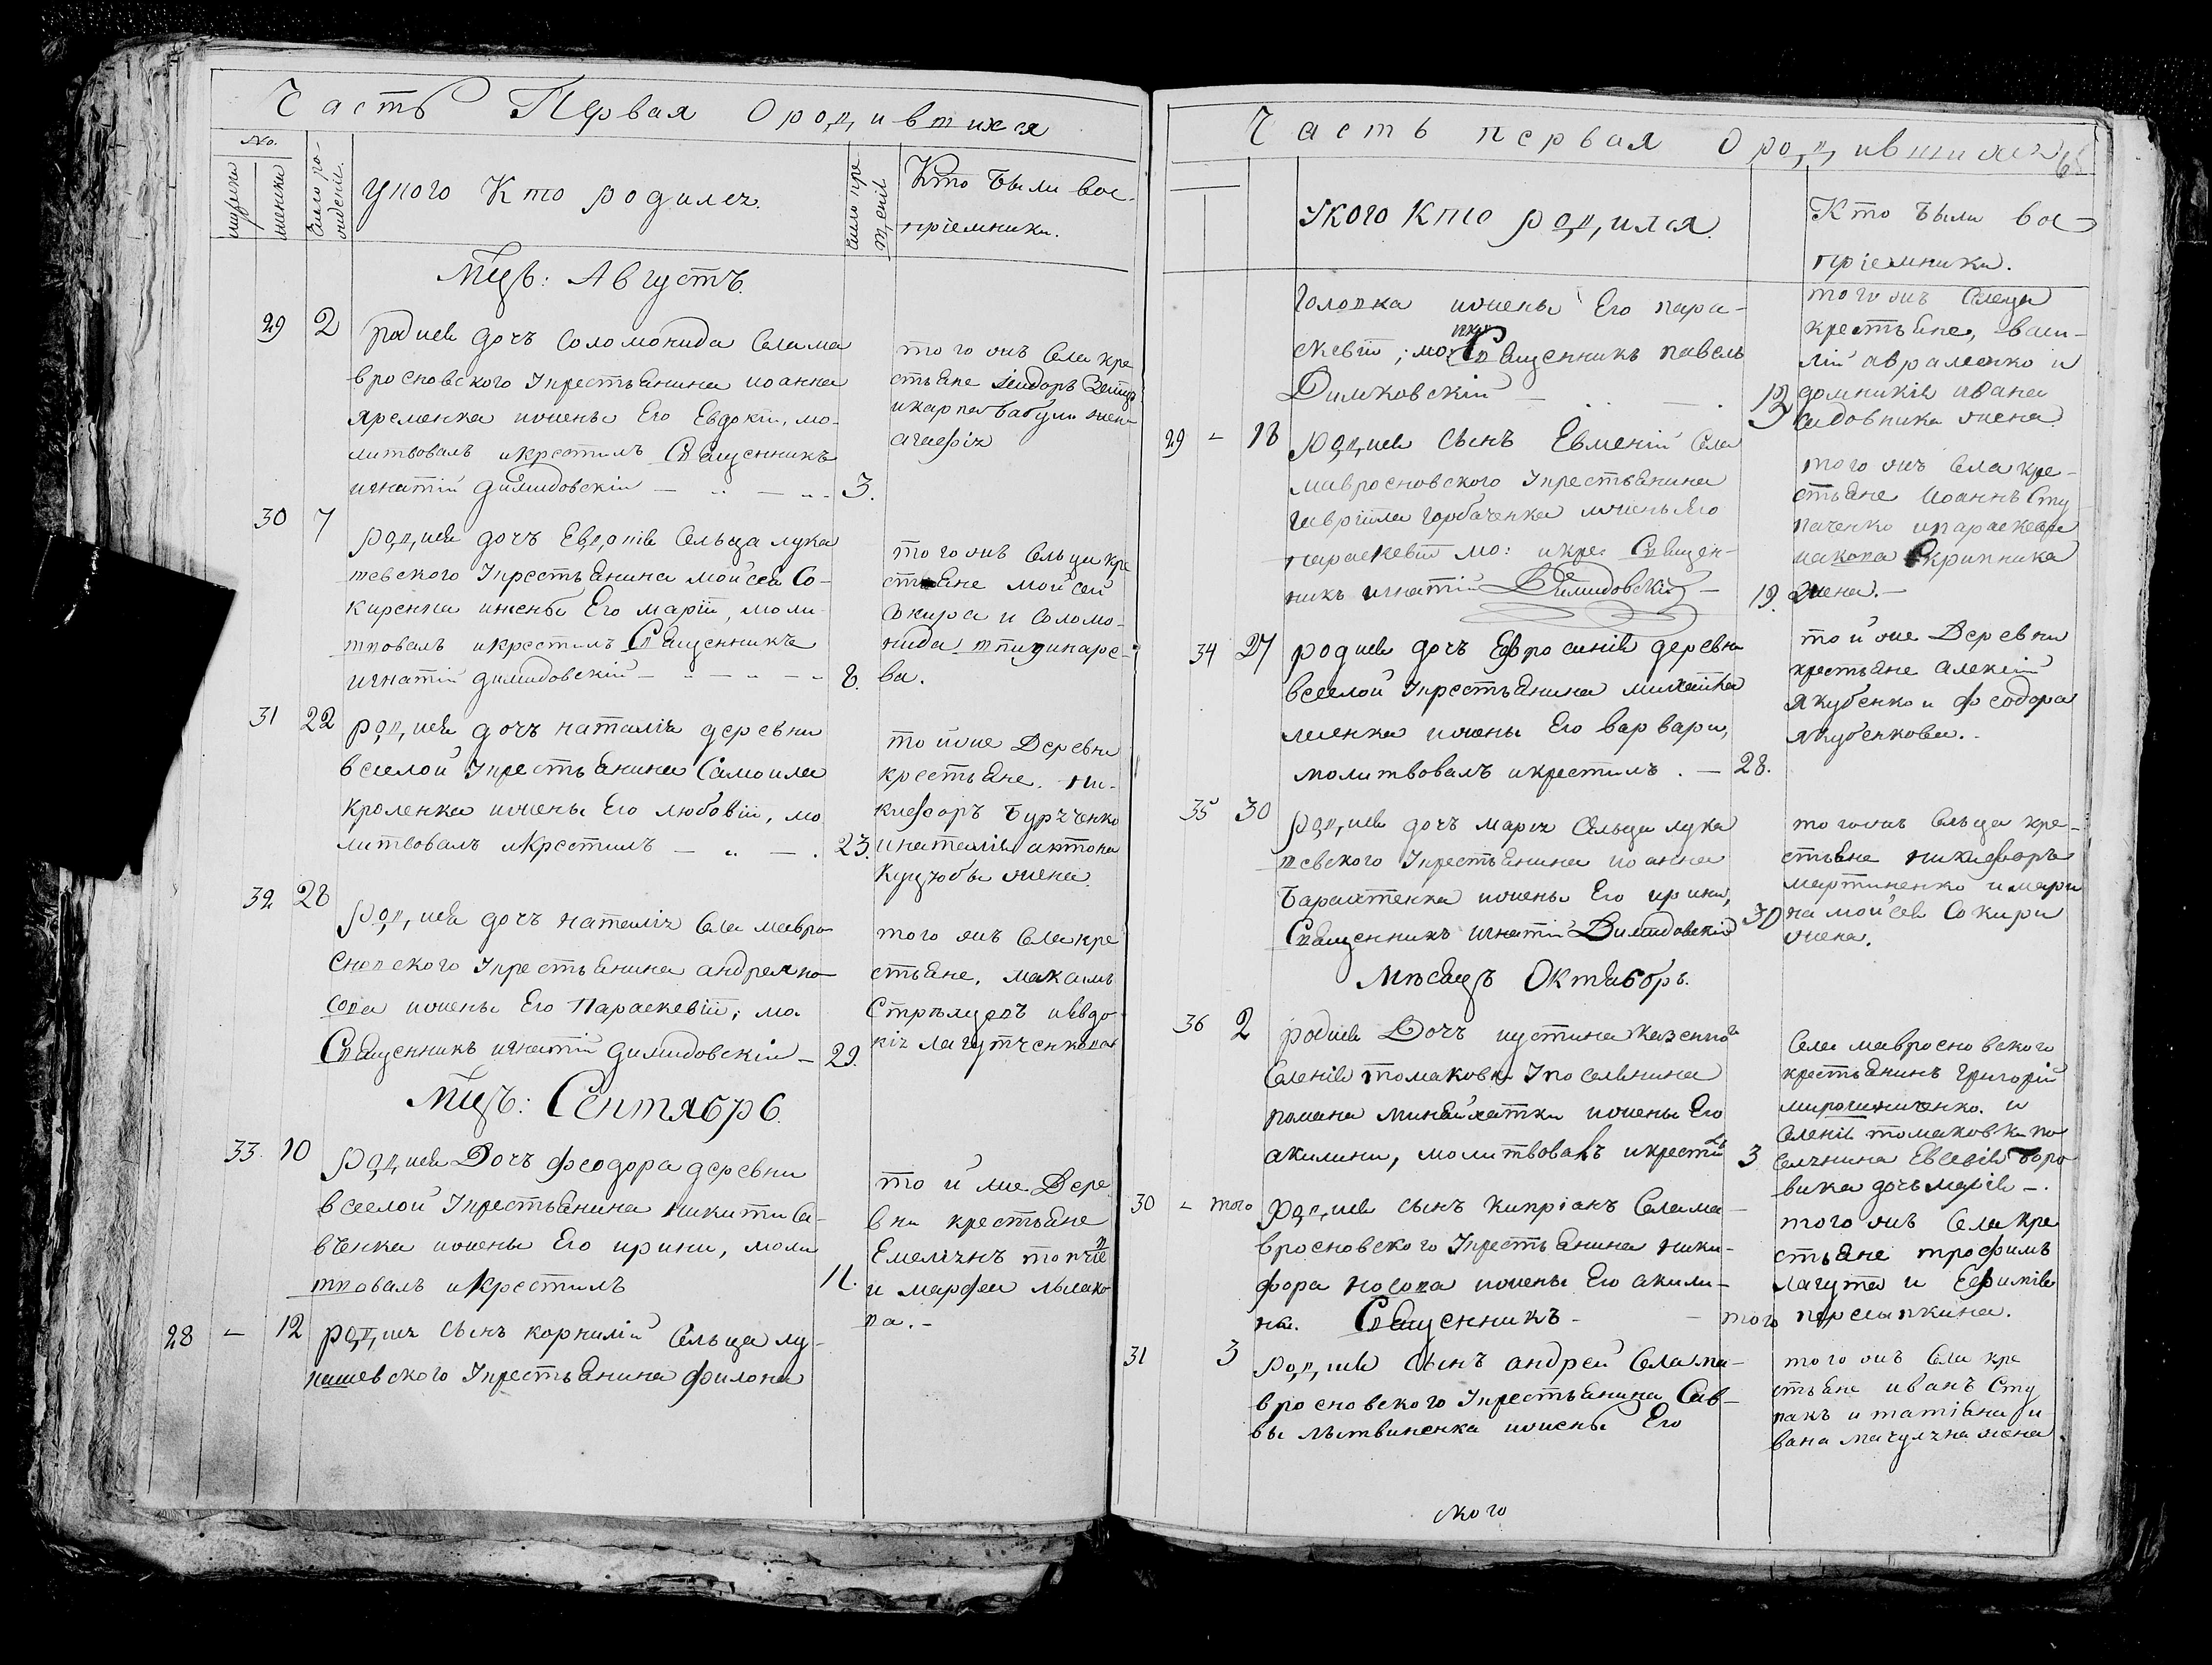 Часть Первая О родившихся
No.
мужеска
женска
Число ро-
жденія.
У кого Кто родился.
Число кре
щенія
Кто были вос-
пріемники.
Мцъ: Августъ.
29 2 родися дочъ Соломонида села ма
вросновского У крестьянина иоанна
яременка и жены Его Евдокіи, мо-
литвовалъ и крестилъ Священникъ
игнатій димидовскій — „ — „ 3.
того жъ села кре
стьяне исидоръ
и карпа бабули жен
агафія
30 7 родися дочъ Евдокія сельца лука
шевского У крестьянина мойсея Со-
киренка и жены Его маріи, моли
твовалъ и крестилъ Священникъ
игнатій димидовскій — „ — „ — 8.
того жъ сельца кре
стьяне мойсей
Сокира и соломо-
нида
ва.
31 22 родися дочъ наталія деревни
веселой У крестьянина Самоила
Кроленка и жены Его любовіи, мо
литвовалъ и Крестилъ — „ — . 23.
той же Деревни
крестьяне. ни-
кифоръ Бурченко
и наталія антона
Куцзюбы жена.
32 28 родися дочъ наталія села мавро
сновского У крестьянина андрея но
сова и жены Его Параскевіи, мо.
Священникъ игнатій димидовскій — 29.
того жъ села кре
стьяне, максимъ
Стрѣлцовъ и евдо
кія лагутченкова
Мцъ: Сентябрь.
33. 10 родися Дочъ феодора деревни
веселой У крестьянина никити Са-
вченка и жены Его ирини, моли
твовалъ и Крестилъ 11.
той же Дере
вни крестьяне
Емелиянъ
и марфа
ва. –
28 – 12 родися сынъ корнилій сельца лу-
кашевского У крестьянина филона
Часть первая О родившихся
У кого Кто родился.
Кто были вос-
пріемники.
головка и жены Его пара-
скевіи; мо: и кре: Священникъ павелъ
Димковскій — .. — . 13
того жъ Сельца
крестьяне, васи-
лій авраменко и
домникія ивана
садовника жена.
29 – 18 родися сынъ Евменій села
мавросновского У крестьянина
гавріила горбаченка и жены Его
параскевіи мо: и кре: Священ-
никъ игнатій Димидовскій — 19.
того жъ села кре-
стьяне Иоаннъ Сту
паченко и параскева
иакова Скрипника
жена. —
34 27 родися дочъ Ефросинія деревни
веселой У крестьянина
ленка и жены Его варвари,
молитвовалъ и крестилъ . — 28.
той же Деревни
крестьяне алексій
якубенко и феодора
якубенкова. –
35 30 родися дочъ марія сельца лука
шевского У крестьянина иоанна
Барахтенка и жены Его ирини,
Священникъ игнатій Димидовскій 30
того жъ сельца кре-
стьяне никифоръ
мартиненко и мари
на мойсея Сокири
жена.
Мѣсяцъ Октябрь.
36 2 родися Дочъ иустина казенного
Селенія томаковки У поселянина
романа и жены Его
акилини, молитвовалъ и крестилъ 3
Села мавросновского
крестьянинъ григорій
мирошниченко. и
селенія томаковки по
селянина Евсевія боро
вика дочъ марія —.
30 – того родися сынъ киприанъ села ма-
вросновского У крестьянина ники-
фора носова и жены Его акили-
ни. Священникъ – – того
того жъ села кре
стьяне трофимъ
лагута и Ефимія
пересыпкина.
31 3 родися сынъ андрей села ма-
вросновского У крестьянина Сав-
вы литвиненка и жены Его
того жъ села кре
стьяне иванъ Сту
пакъ и татіяна и
вана мачулина жена
ского